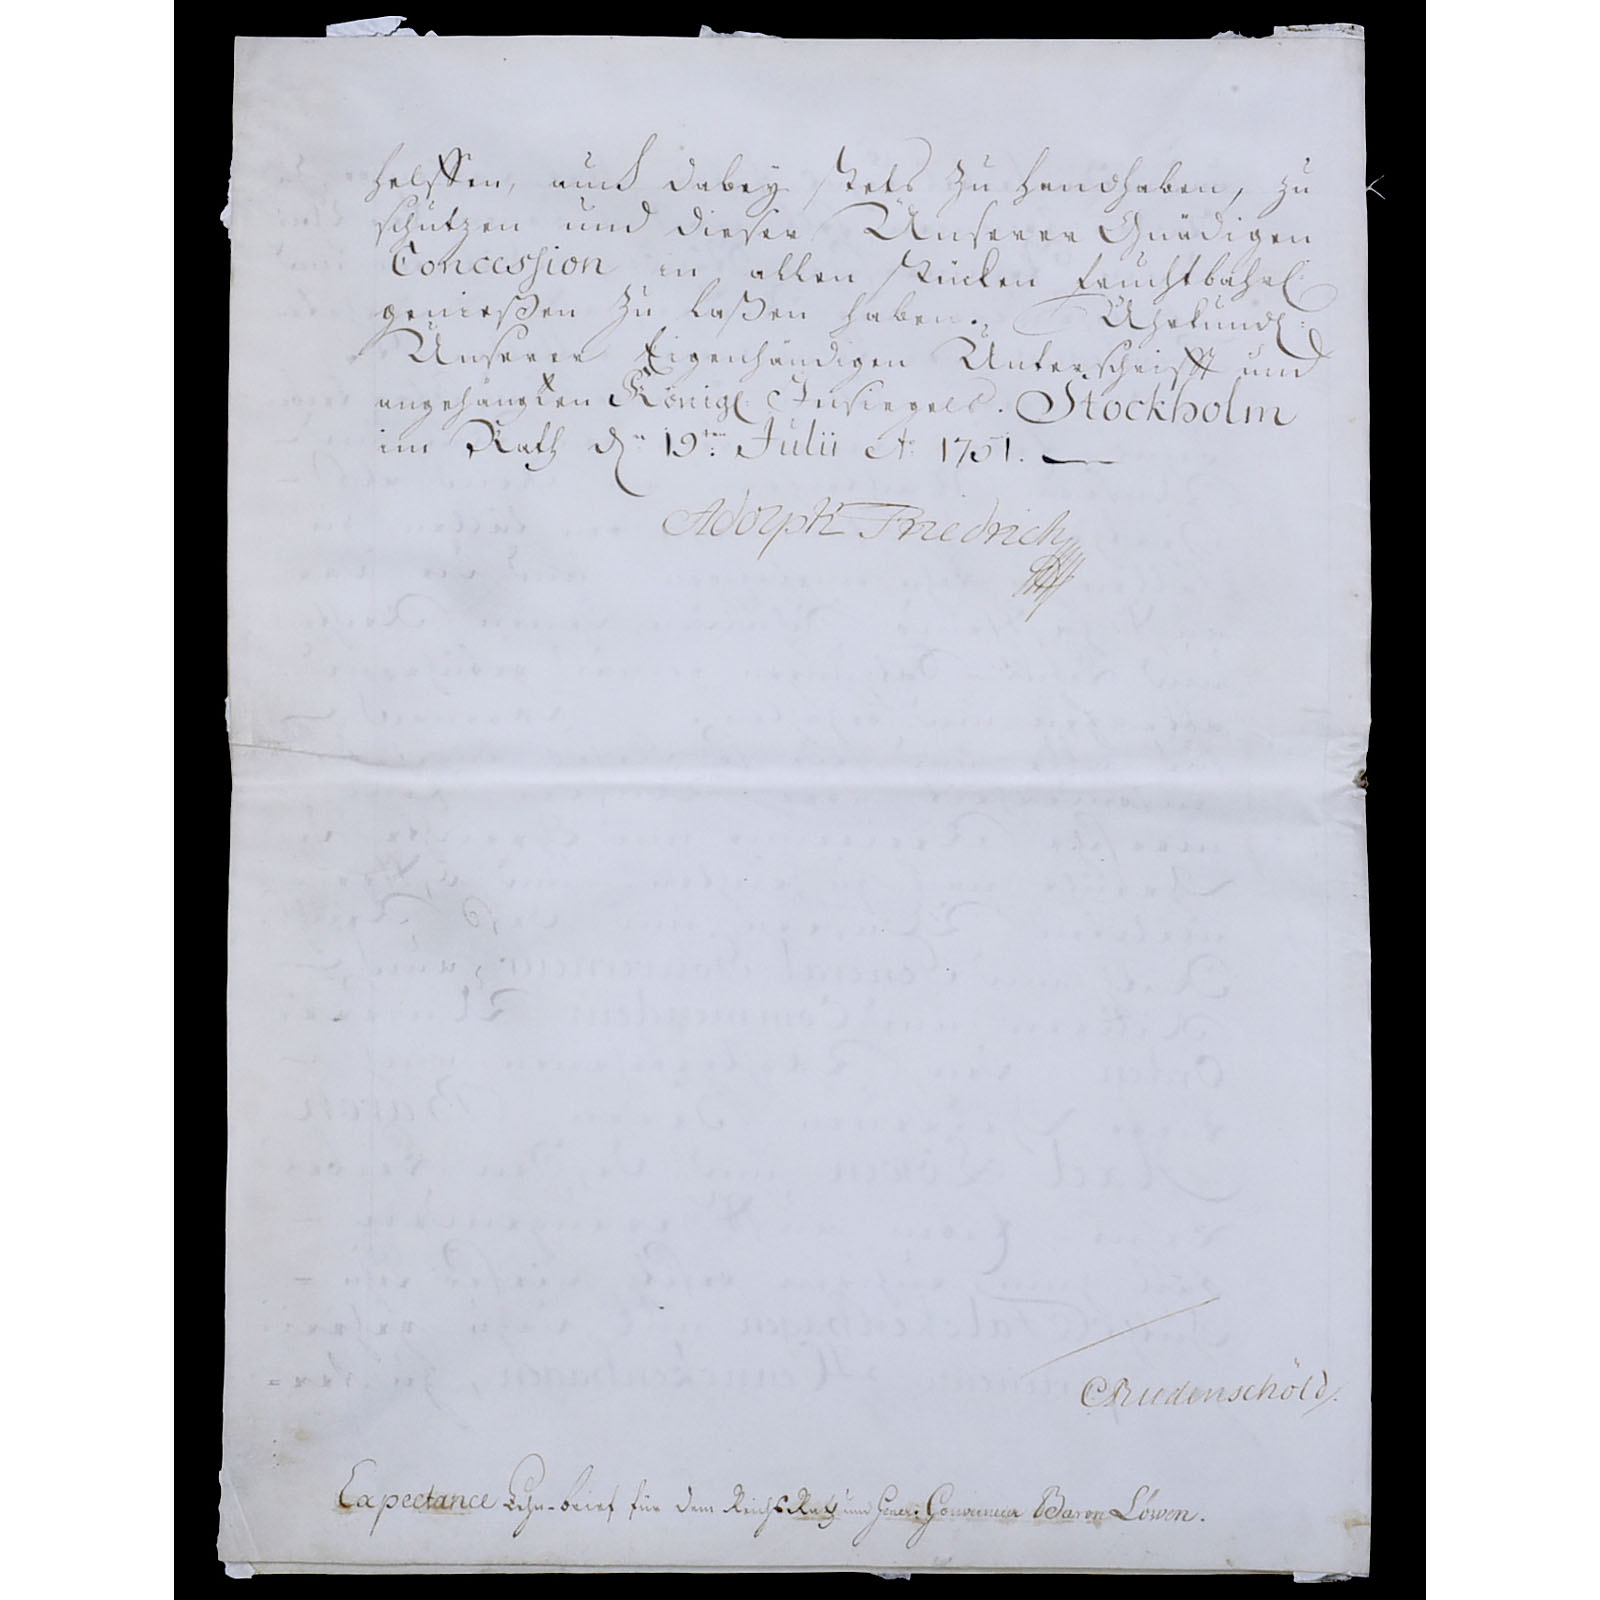 helffen, auch dabey stets zu handhaben, zu
schützen und dieser Unserer Gnädigen
Concession in allen stücken fruchtbahrl:
genießen zu laßen haben. Uhrkundl:
Unserer Eigenhändigen Unterschrifft und
angehängten Königl: Insiegels. Stockholm
im Rath d. 19ten Julii Ao: 1751.
Adolph Friedrich
CRudenschöld.
Expectance Lehn-brief für dem ReichsRath und Gener: Gouverneur Baron Löwen.